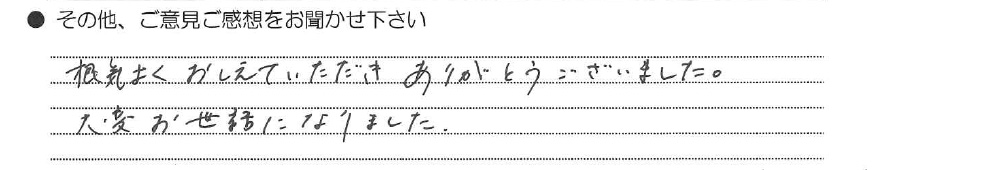 ● その他、ご意見ご感想をお聞かせ下さい
根気よく おしえていただき ありがとうございました。
大変お世話になりました.